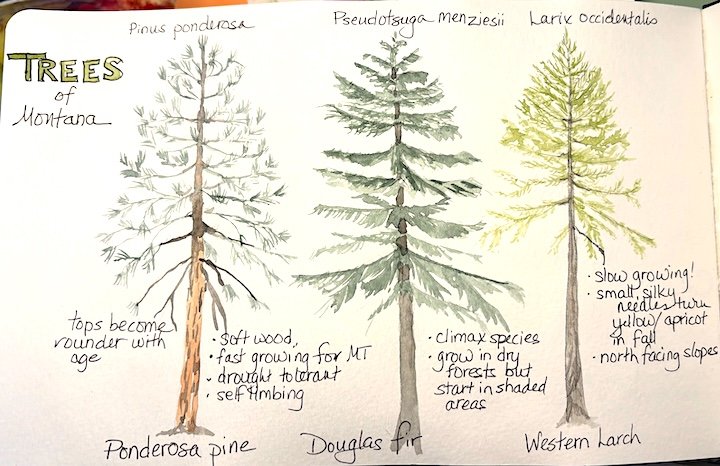 TREES
of
Montana
Pinus ponderosa
Pseudotsuga menziesii
Larix occidentalis
tops become
rounder with
age
• soft wood,
• fast growing for MT
• drought tolerant
• self limbing
• climax species
• grow in dry
forests but
start in shaded
areas
• slow growing!
• small, silky
needles turn
yellow/apricot
in fall
• north facing slopes
Ponderosa pine
Douglas fir
Western Larch